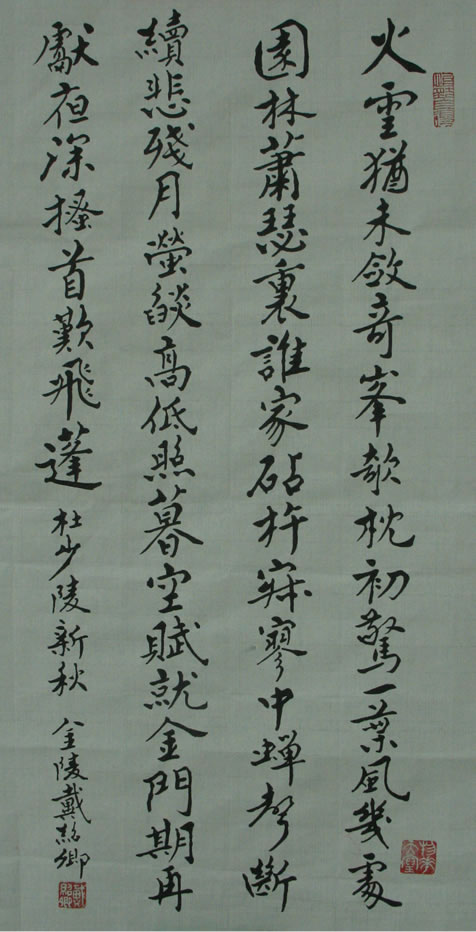 火雲猶未斂奇峯欹枕初驚一葉風幾處
園林蕭瑟裏誰家砧杵寂寥中蟬聲斷
續悲殘月螢燄高低照暮空賦就金門期再
獻夜深搔首歎飛蓬 杜少陵新秋 金陵戴紹卿